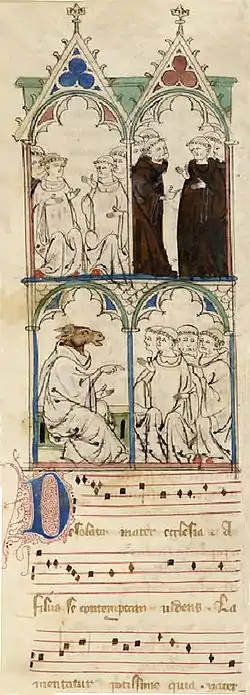 Desolata mater ecclesia. A
filiis se contemptam videns. La
mentatur potissime quia. pater